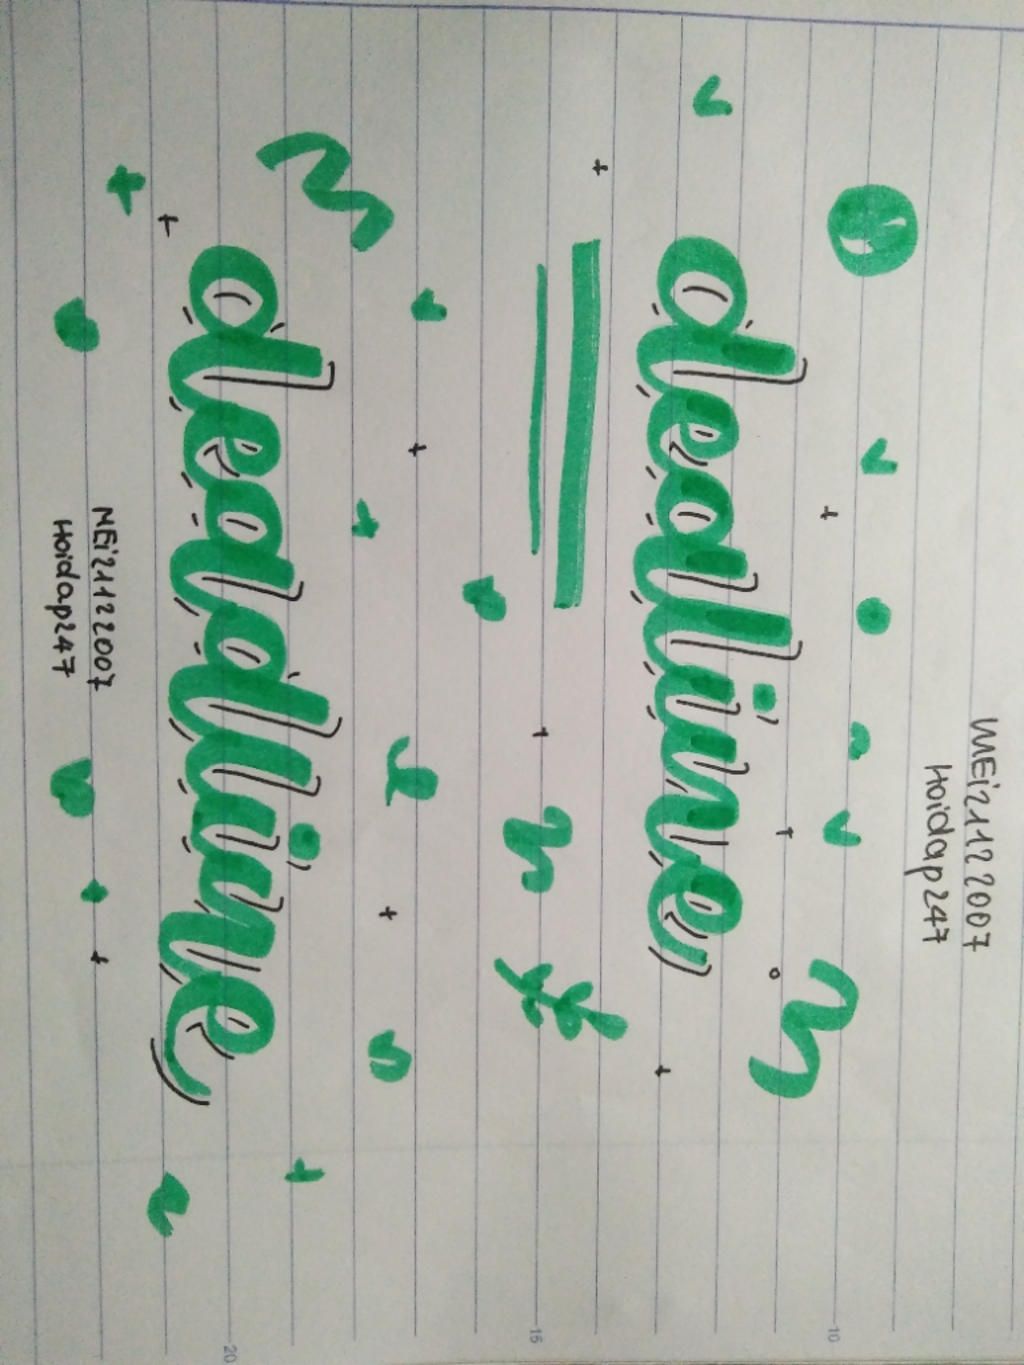 MEi21122007
Hoidap247
10
dealine
15
deadline
20
MEi21122007
Hoidap247